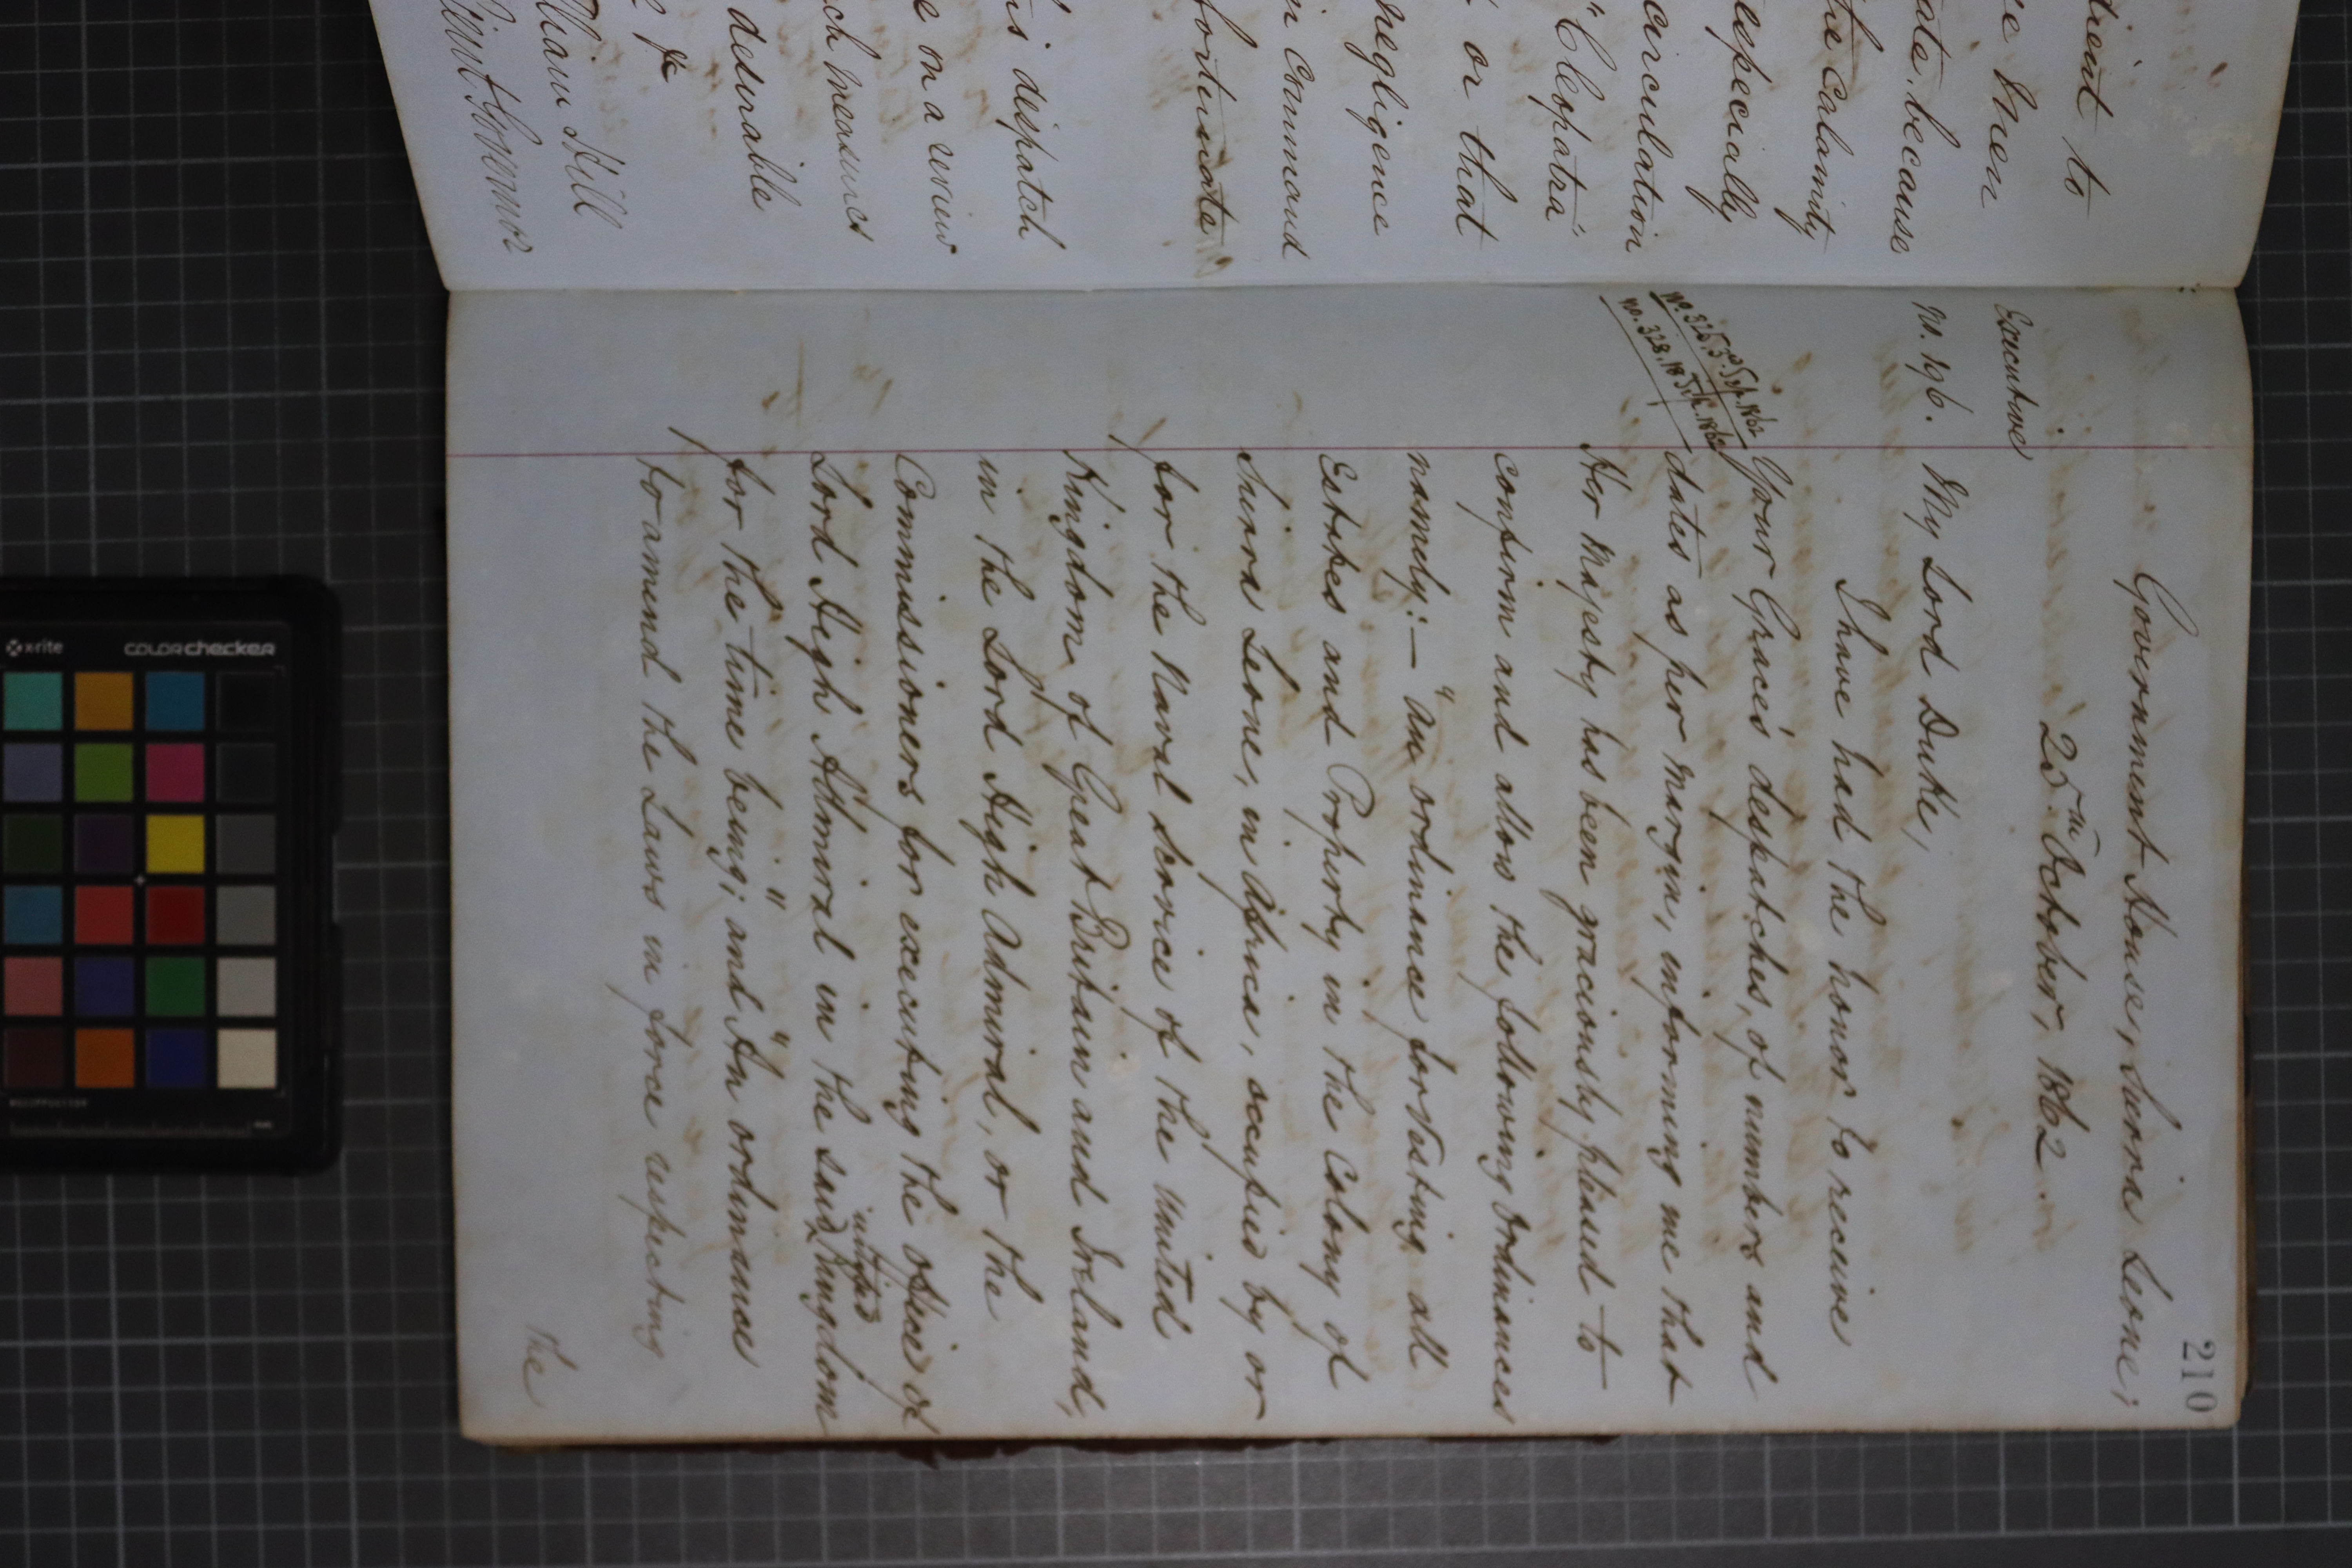 dient to
se men
ate, because
the Calamity
especially
circulation
"Cleopatra"
or that
negligence
in Command
fortunate
is dispatch
e on a review
ch measures
desirable
& &c
William Hill
Lieut Governor
210
Government House, Sierra Leone;
25th October, 1862.
Executive
No. 196.
My Lord Duke,
I have had the honor to receive
No. 326, 5th Sept. 1862
No. 328, 18 Sept. 1862
Your Grace's despatches, of numbers and
dates as per margin, informing me that
Her Majesty has been graciously pleased to
confirm and allow the following Ordinances
namely:— "An ordinance for vesting all
Estates and Property in the Colony of
Sierra Leone, in Africa, occupied by or
for the Naval service of the United
Kingdom of Great Britain and Ireland,
in the Lord High Admiral, or the
Commissioners for executing the office of
Lord High Admiral in the said united Kingdom
for the time being;" and "An ordinance
to amend the Laws in force respecting
the
x-rite
colorchecker